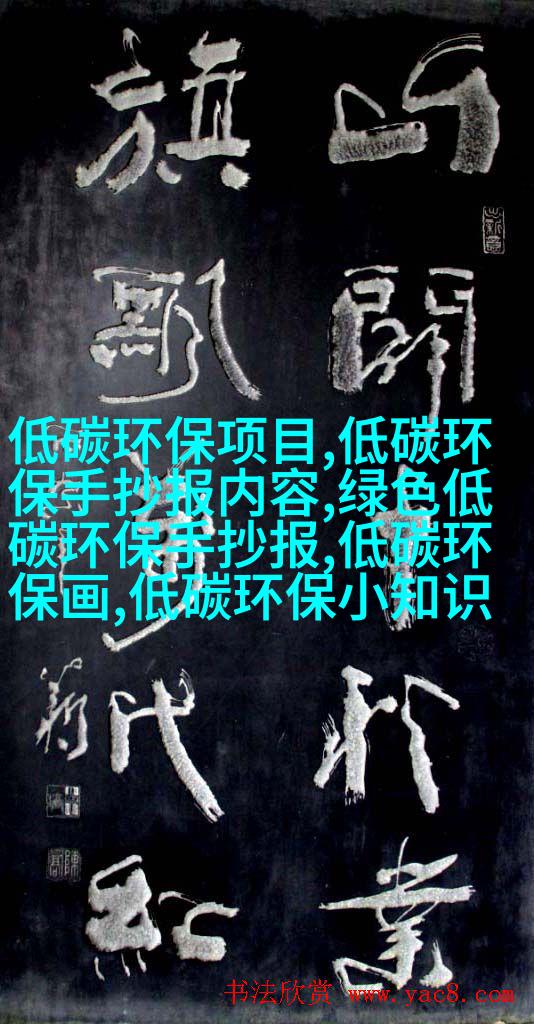 開千秋業
旗飄萬代紅
低碳环保项目,低碳环
保手抄报内容,绿色低
碳环保手抄报,低碳环
保画,低碳环保小知识
书法欣赏 www.yac8.com